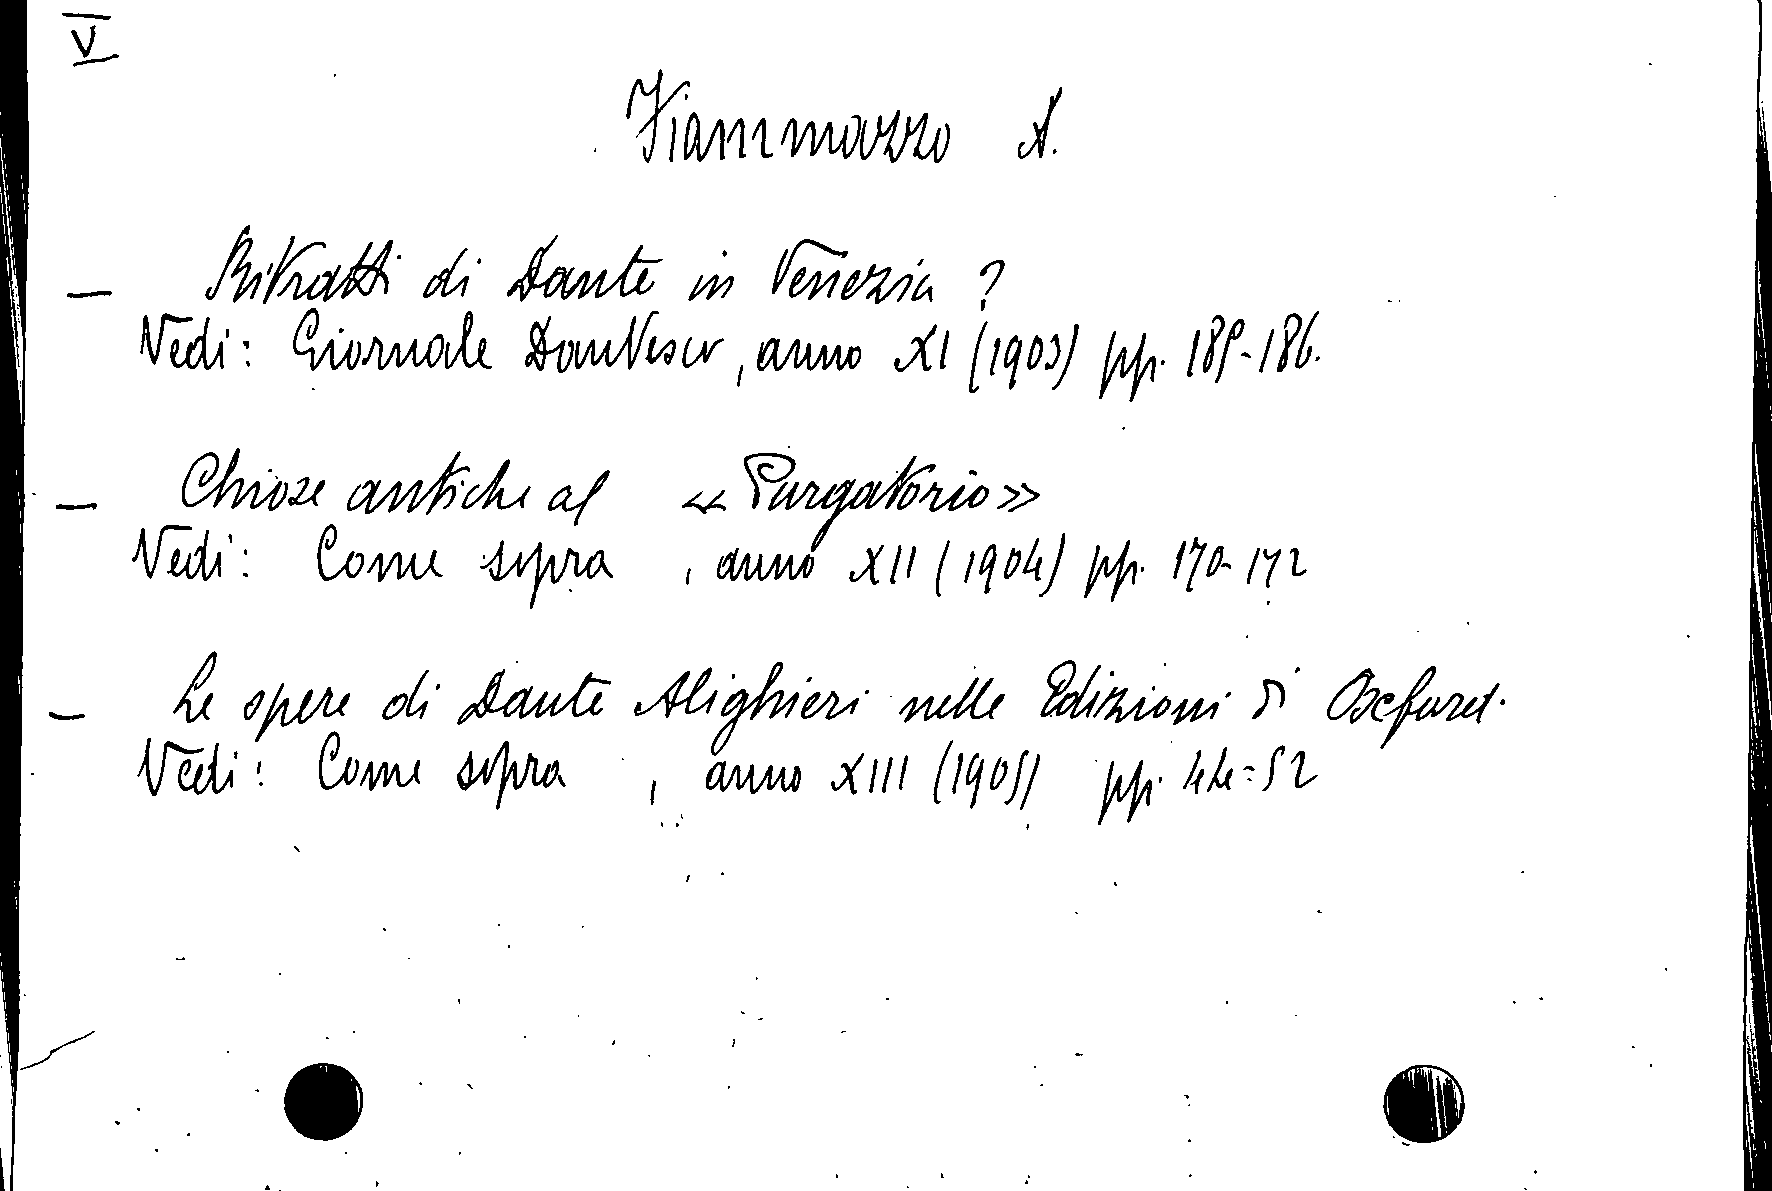 V
Fiammazzo A.
— Ritratti di Dante in Venezia ?
Vedi: Giornale Dantesco, anno XI (1903) pp. 185-186.
— Chiose antiche al « Purgatorio »
Vedi: Come sopra , anno XII (1904) pp. 170-172
— Le opere di Dante Alighieri nelle Edizioni di Oxford.
Vedi: Come sopra , anno XIII (1905) pp. 44=52